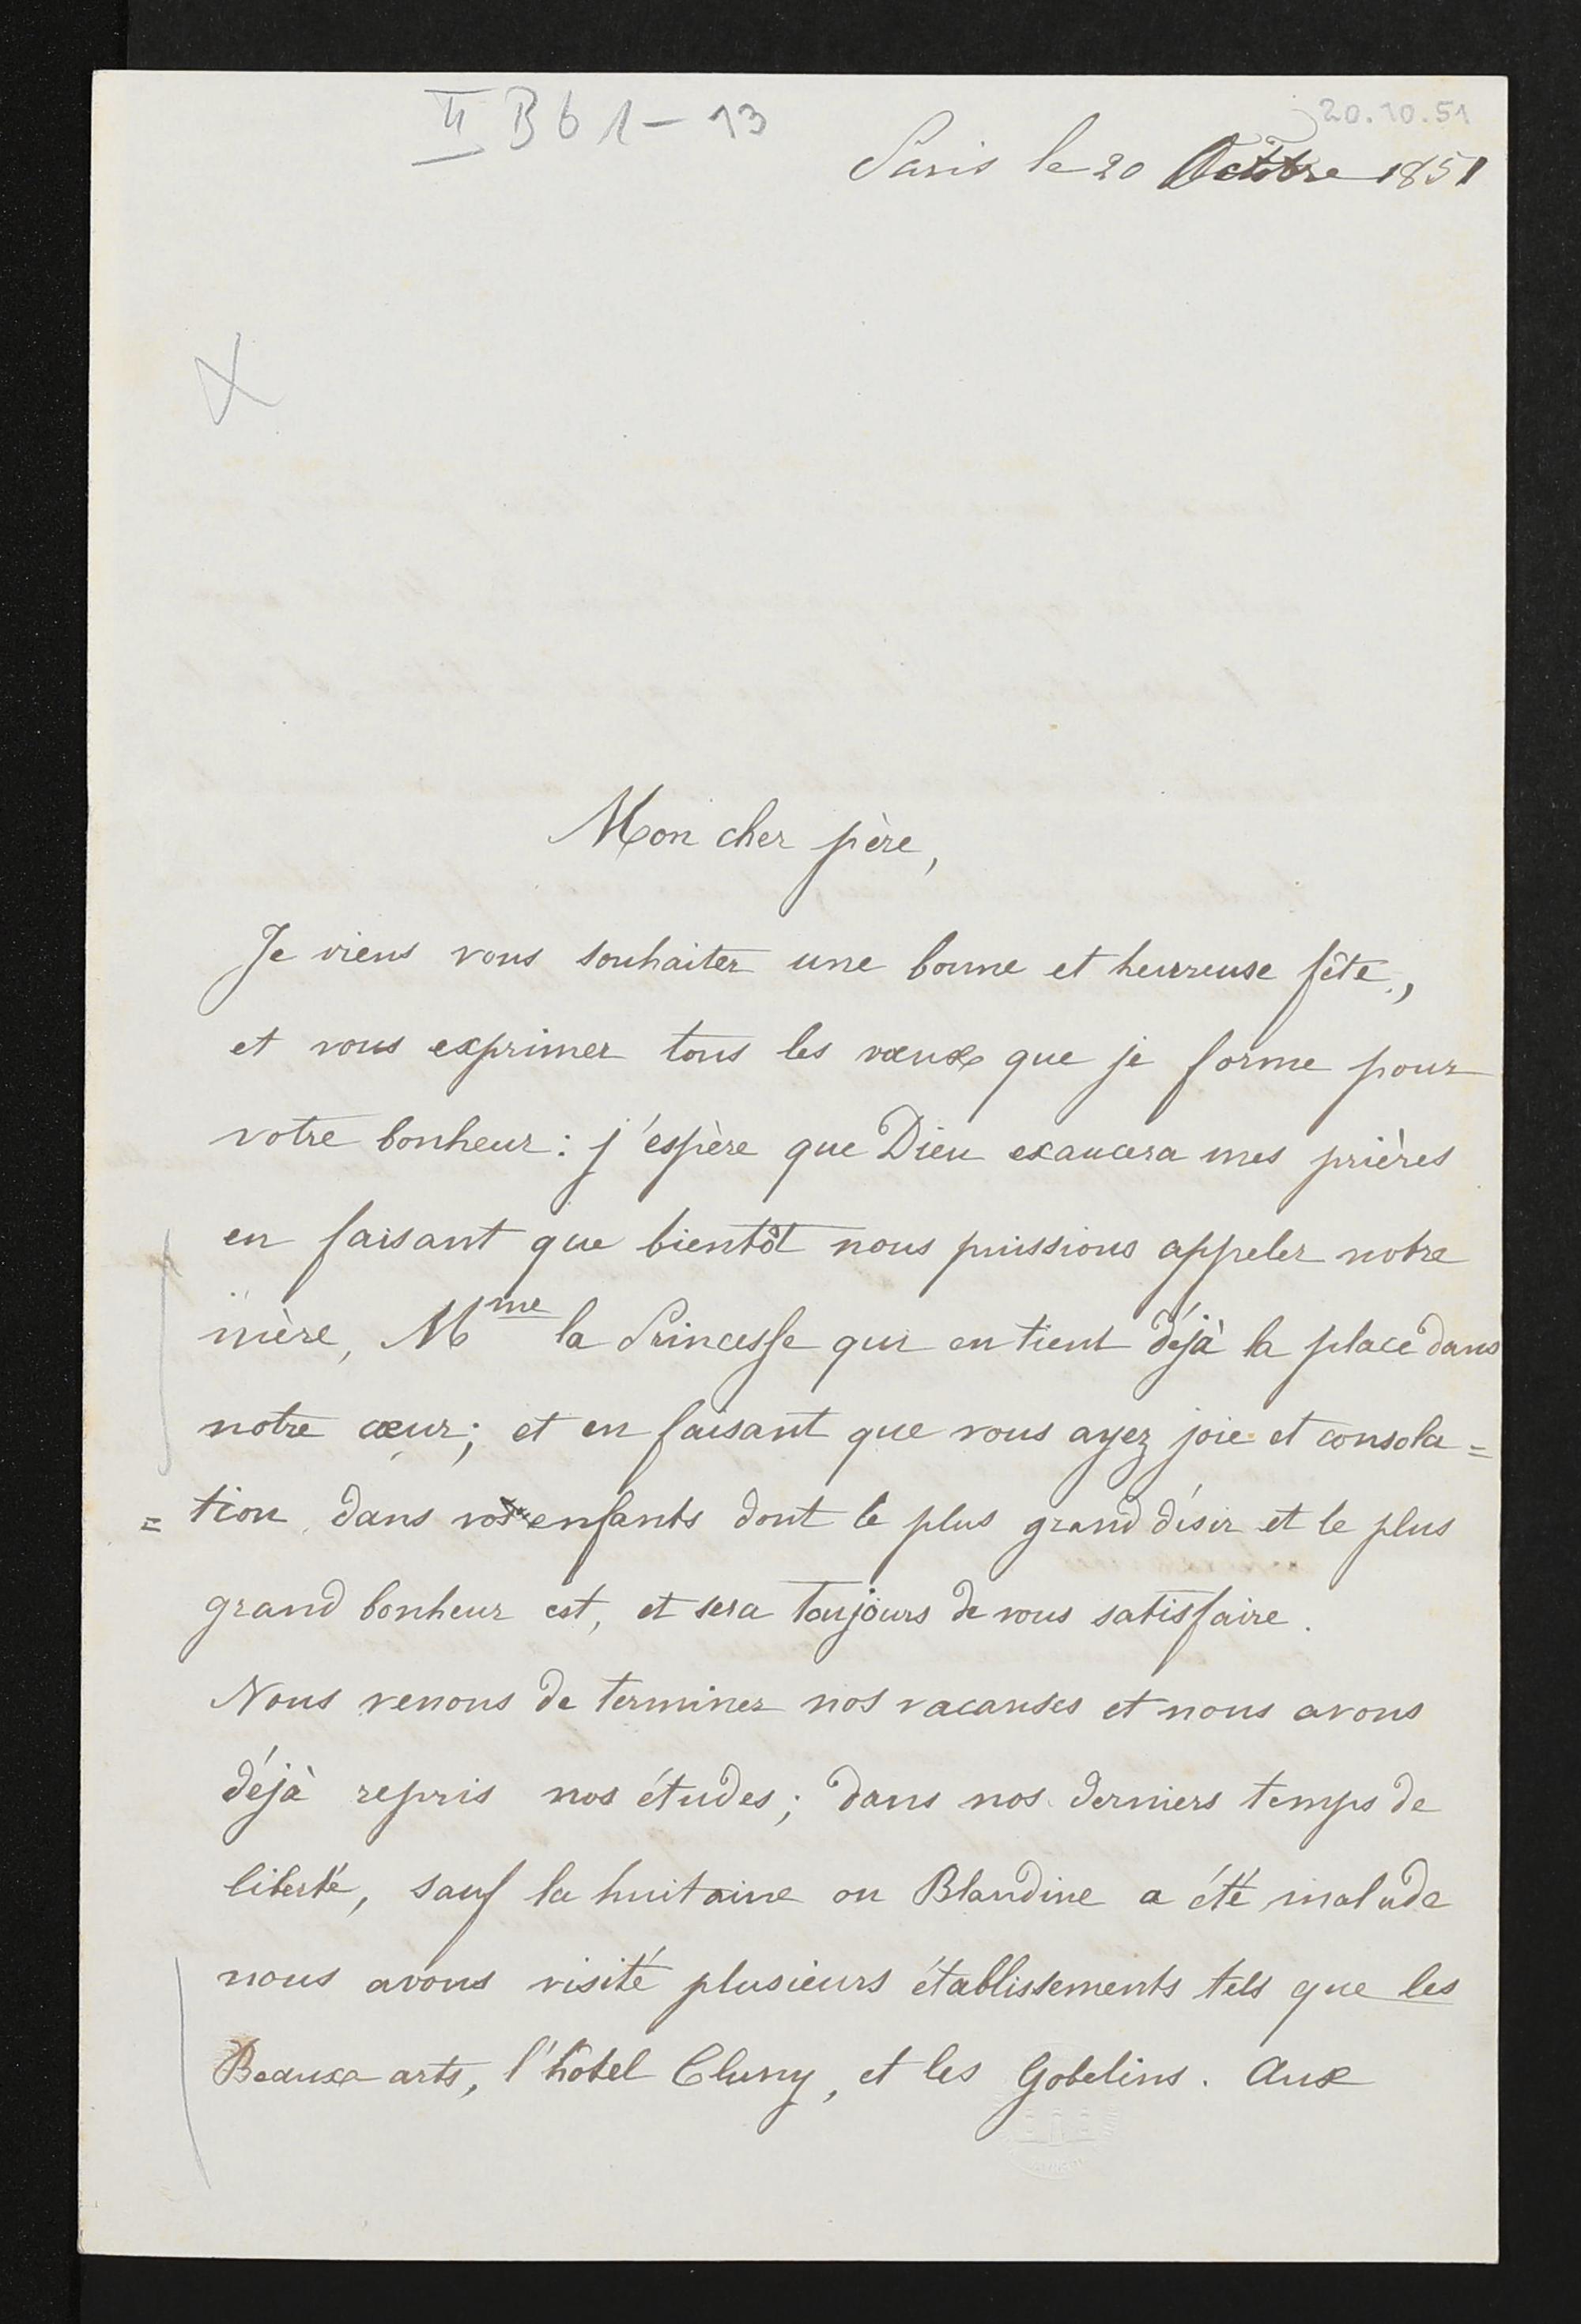 II B b 1 - 13
20.10.51
Paris le 20 Octobre 1851
Mon cher père,
Je viens vous souhaiter une bonne et heureuse fête,
et vous exprimer tous les vœux que je forme pour
votre bonheur : j'espère que Dieu exaucera mes prières
en faisant que bientôt nous puissions appeler notre
mère, Mme la Princesse qui en tient déjà la place dans
notre cœur ; et en faisant que vous ayez joie et consola=
=tion dans vos enfants dont le plus grand désir et le plus
grand bonheur est, et sera toujours de vous satisfaire.
Nous venons de terminer nos vacanses et nous avons
déjà repris nos études ; dans nos derniers temps de
liberté, sauf la huitaine ou Blandine a été malade
nous avons visité plusieurs établissements tels que les
Beaux arts, l'hôtel Cluny, et les Gobelins. Aux